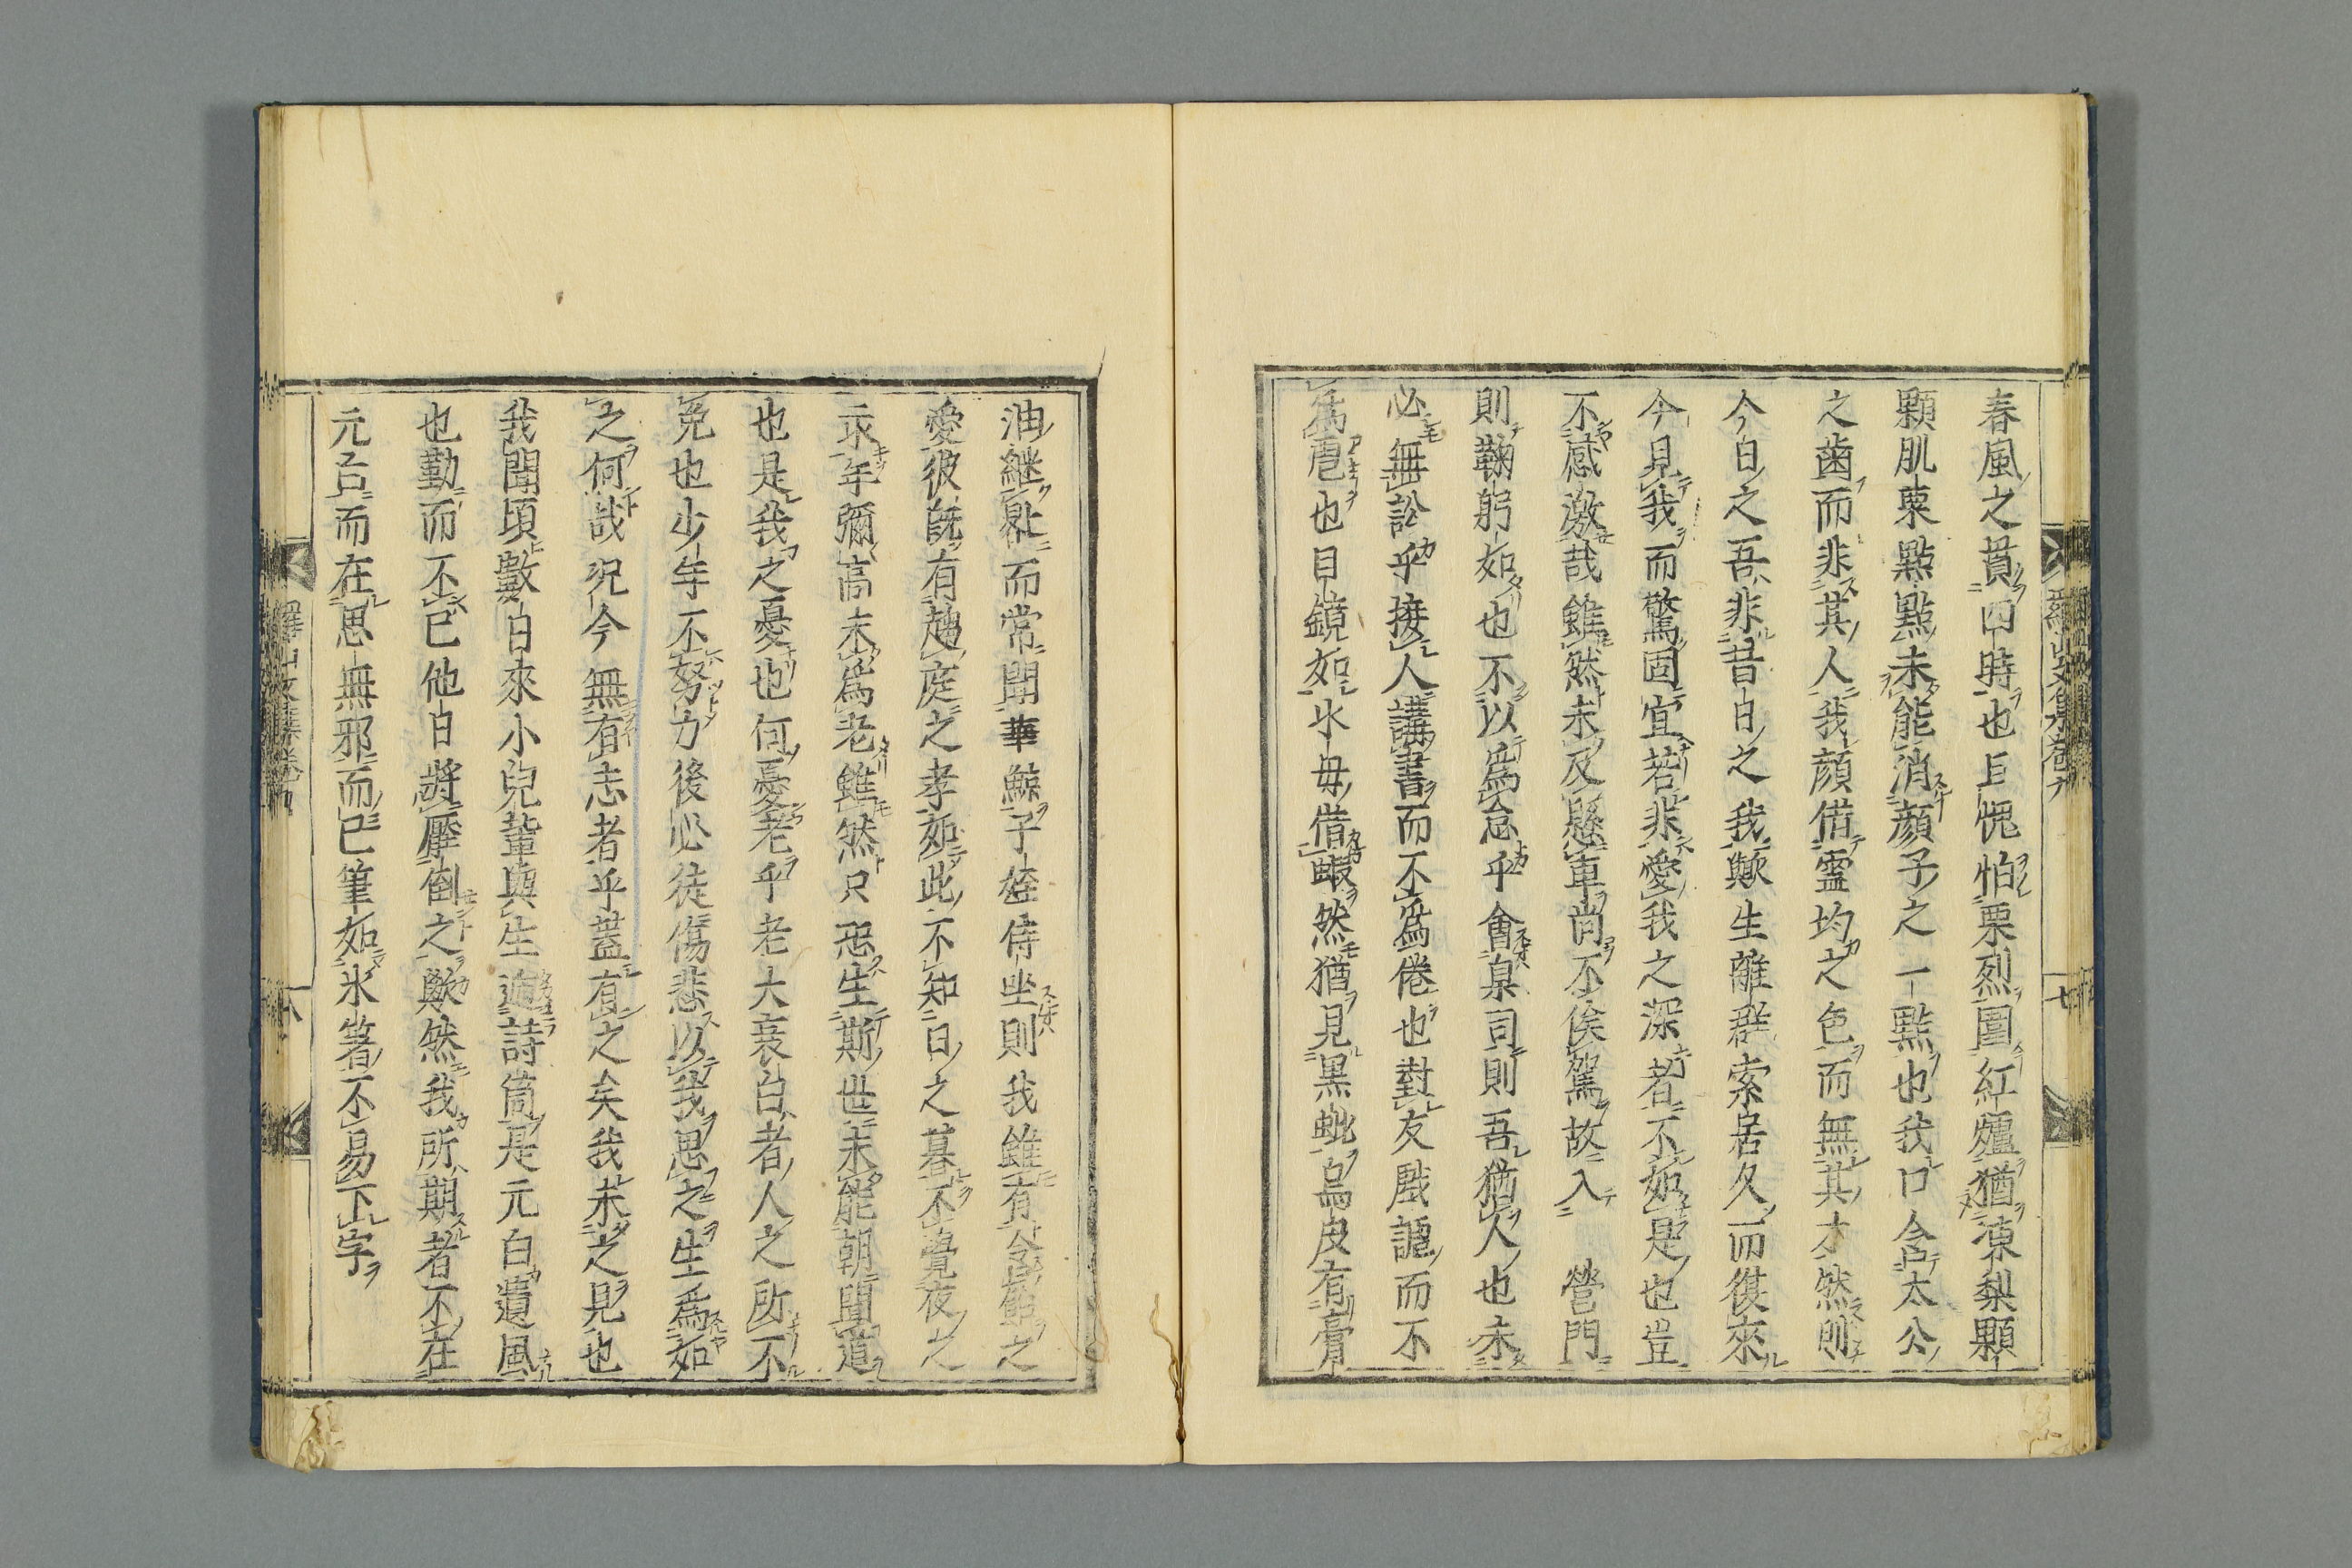 春風之蕢四時也且愧怕栗烈圍紅爐猶凍梨顆
顆肌粟點點未能消顔子之一點也我口含太公
之齒而非其人我顔借靈均之色而無其才然則
今日之吾非昔日之我歟生離群索居久而後來
今見我而驚固宜若非愛我之深者不如是也豈
不感激哉雖然未及懸車尚不俟駕故入營門
則鞠躬如也不以爲怠乎會臬司則吾猶人也未
必無訟乎接人講書而不爲倦也對友戲謔而不
爲乕也目鏡如水母借蝦然猶見黒虵烏皮有膏
油繼晷而常聞華鯨子姪侍坐則我雖有含飴之
愛彼既有趨庭之孝如此不知日之暮不覺夜之
永年彌高未爲老雖然只恐生斯世未能朝聞道
也是我之憂也何憂老乎老大衰白者人之所不
免也少年不努力後必徒傷悲以我思之生爲如
之何哉况今無有志者乎蓋有之矣我未之見也
我聞頃數日來小兒輩與生遞詩筒是元白遺風
也勤而不已他日將壓倒之歟然我所期者不在
元白而在思無邪而已筆如氷箸不易下字
羅山文集卷六
七
八